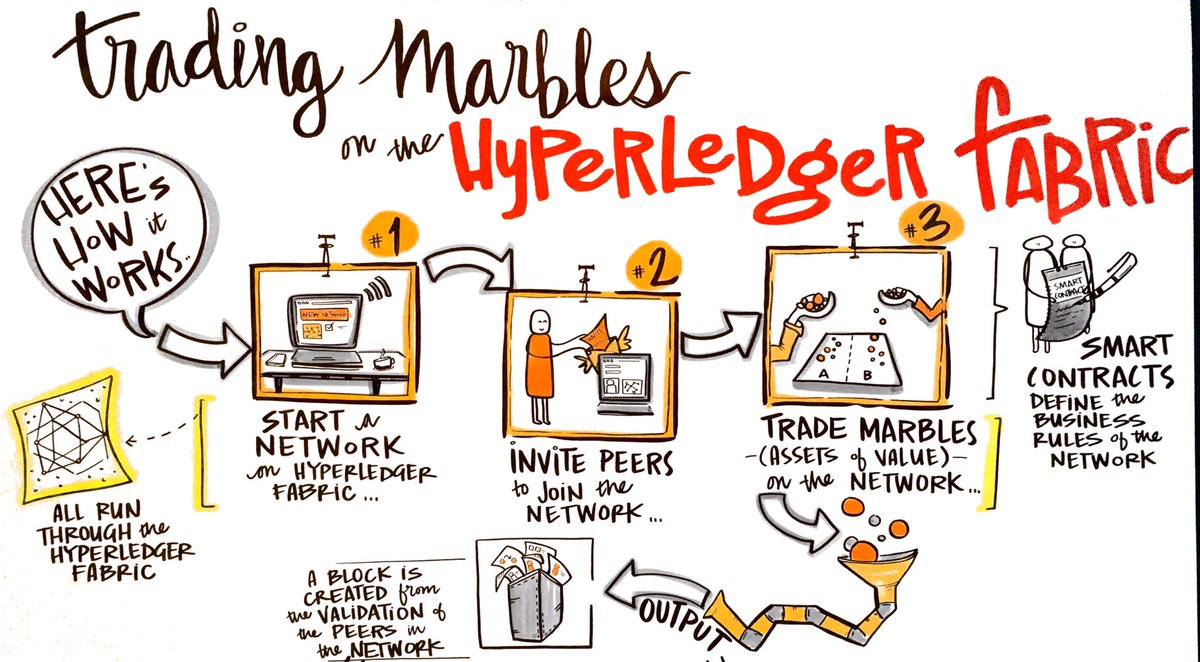 trading Marbles
on the HYPERLEDGER FABRIC
HERE'S
HOW it
WORKS..
#1
NEW NETWORK
START a
NETWORK
on HYPERLEDGER
FABRIC...
#2
INVITE
INVITE PEERS
to JOIN the
NETWORK...
#3
A B
TRADE MARBLES
-(ASSETS of VALUE)-
on the NETWORK...
SMART
CONTRACT
SMART
CONTRACTS
DEFINE the
BUSINESS
RULES of the
NETWORK
ALL RUN
THROUGH the
HYPERLEDGER
FABRIC
OUTPUT
A BLOCK IS
CREATED from
the VALIDATION of
the PEERS in
the NETWORK